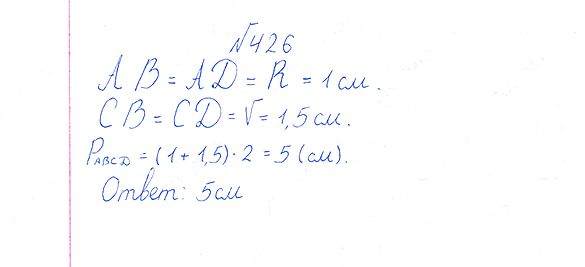 №426
AB = AD = R = 1 см.
CB = CD = r = 1,5 см.
PABCD = (1 + 1,5) · 2 = 5 (см).
Ответ: 5см